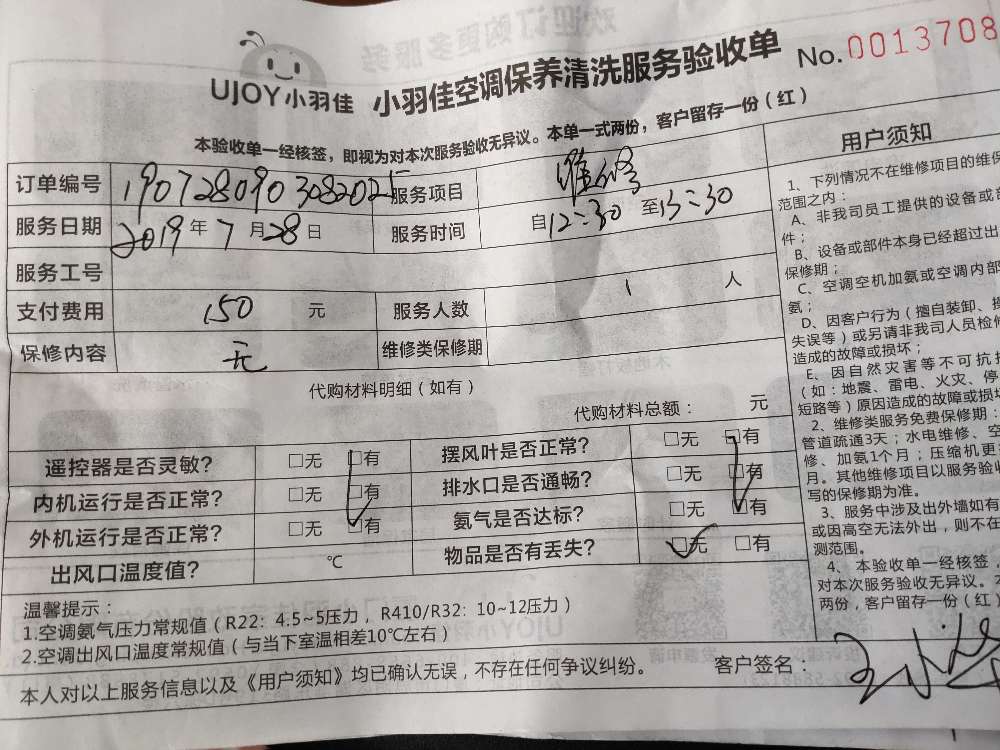 UJOY小羽佳 小羽佳空调保养清洗服务验收单 No.0013708
本验收单一经核签，即视为对本次服务验收无异议。本单一式两份，客户留存一份（红）
订单编号 190728090308202 服务项目 维修
服务日期 2019年7月28日 服务时间 自12:30 至13:30
服务工号
支付费用 150 元 服务人数 1 人
保修内容 无 维修类保修期
代购材料明细（如有）
代购材料总额： 元
遥控器是否灵敏？ □无 □有 摆风叶是否正常？ □无 □有
内机运行是否正常？ □无 □有 排水口是否通畅？ □无 □有
外机运行是否正常？ □无 □有 氨气是否达标？ □无 □有
出风口温度值？ ℃ 物品是否有丢失？ □无 □有
温馨提示：
1.空调氨气压力常规值（R22：4.5~5压力，R410/R32：10~12压力）
2.空调出风口温度常规值（与当下室温相差10℃左右）
本人对以上服务信息以及《用户须知》均已确认无误，不存在任何争议纠纷。 客户签名：
用户须知
1、下列情况不在维修项目的维保
范围之内：
A、非我司员工提供的设备或
件；
B、设备或部件本身已经超过出
保修期；
C、空调空机加氨或空调内部
氨；
D、因客户行为（擅自装卸、操
失误等）或另请非我司人员检修
造成的故障或损坏；
E、因自然灾害等不可抗
（如：地震、雷电、火灾、停
短路等）原因造成的故障或损坏
2、维修类服务免费保修期：
管道疏通3天；水电维修、空
修、加氨1个月；压缩机更
月。其他维修项目以服务验收
写的保修期为准。
3、服务中涉及出外墙如有
或因高空无法外出，则不在
测范围。
4、本验收单一经核签，
对本次服务验收无异议。
两份，客户留存一份（红）